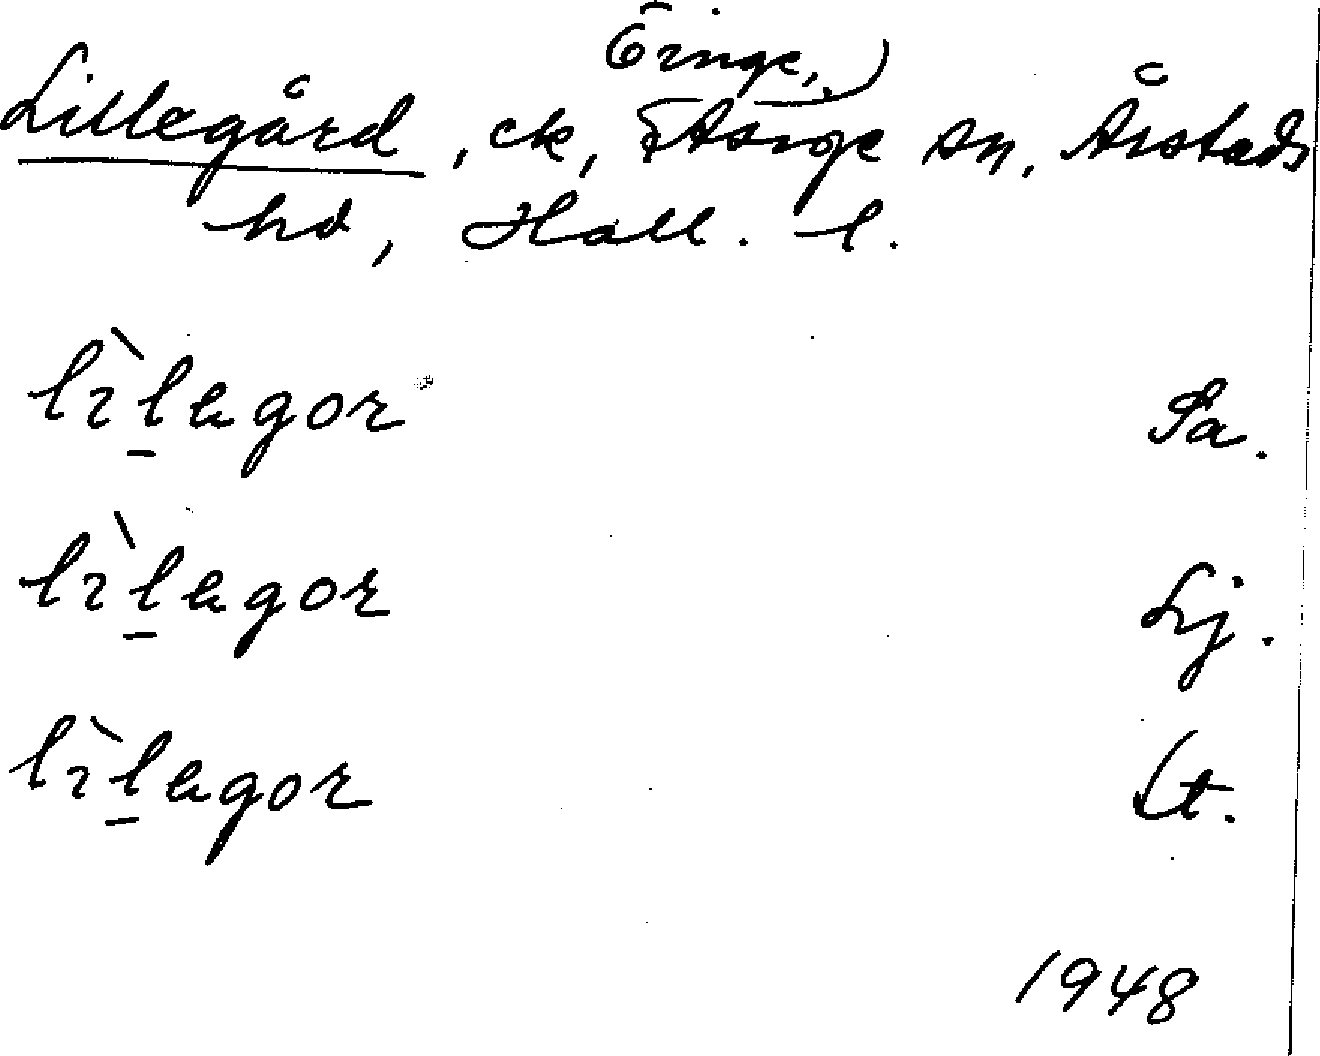 Öinge,
Lillegård, ek, Asige sn. Årstads
hd, Hall. l.
lìlegor Sa.
lìlegor Lj.
lìlegor Lt.
1948